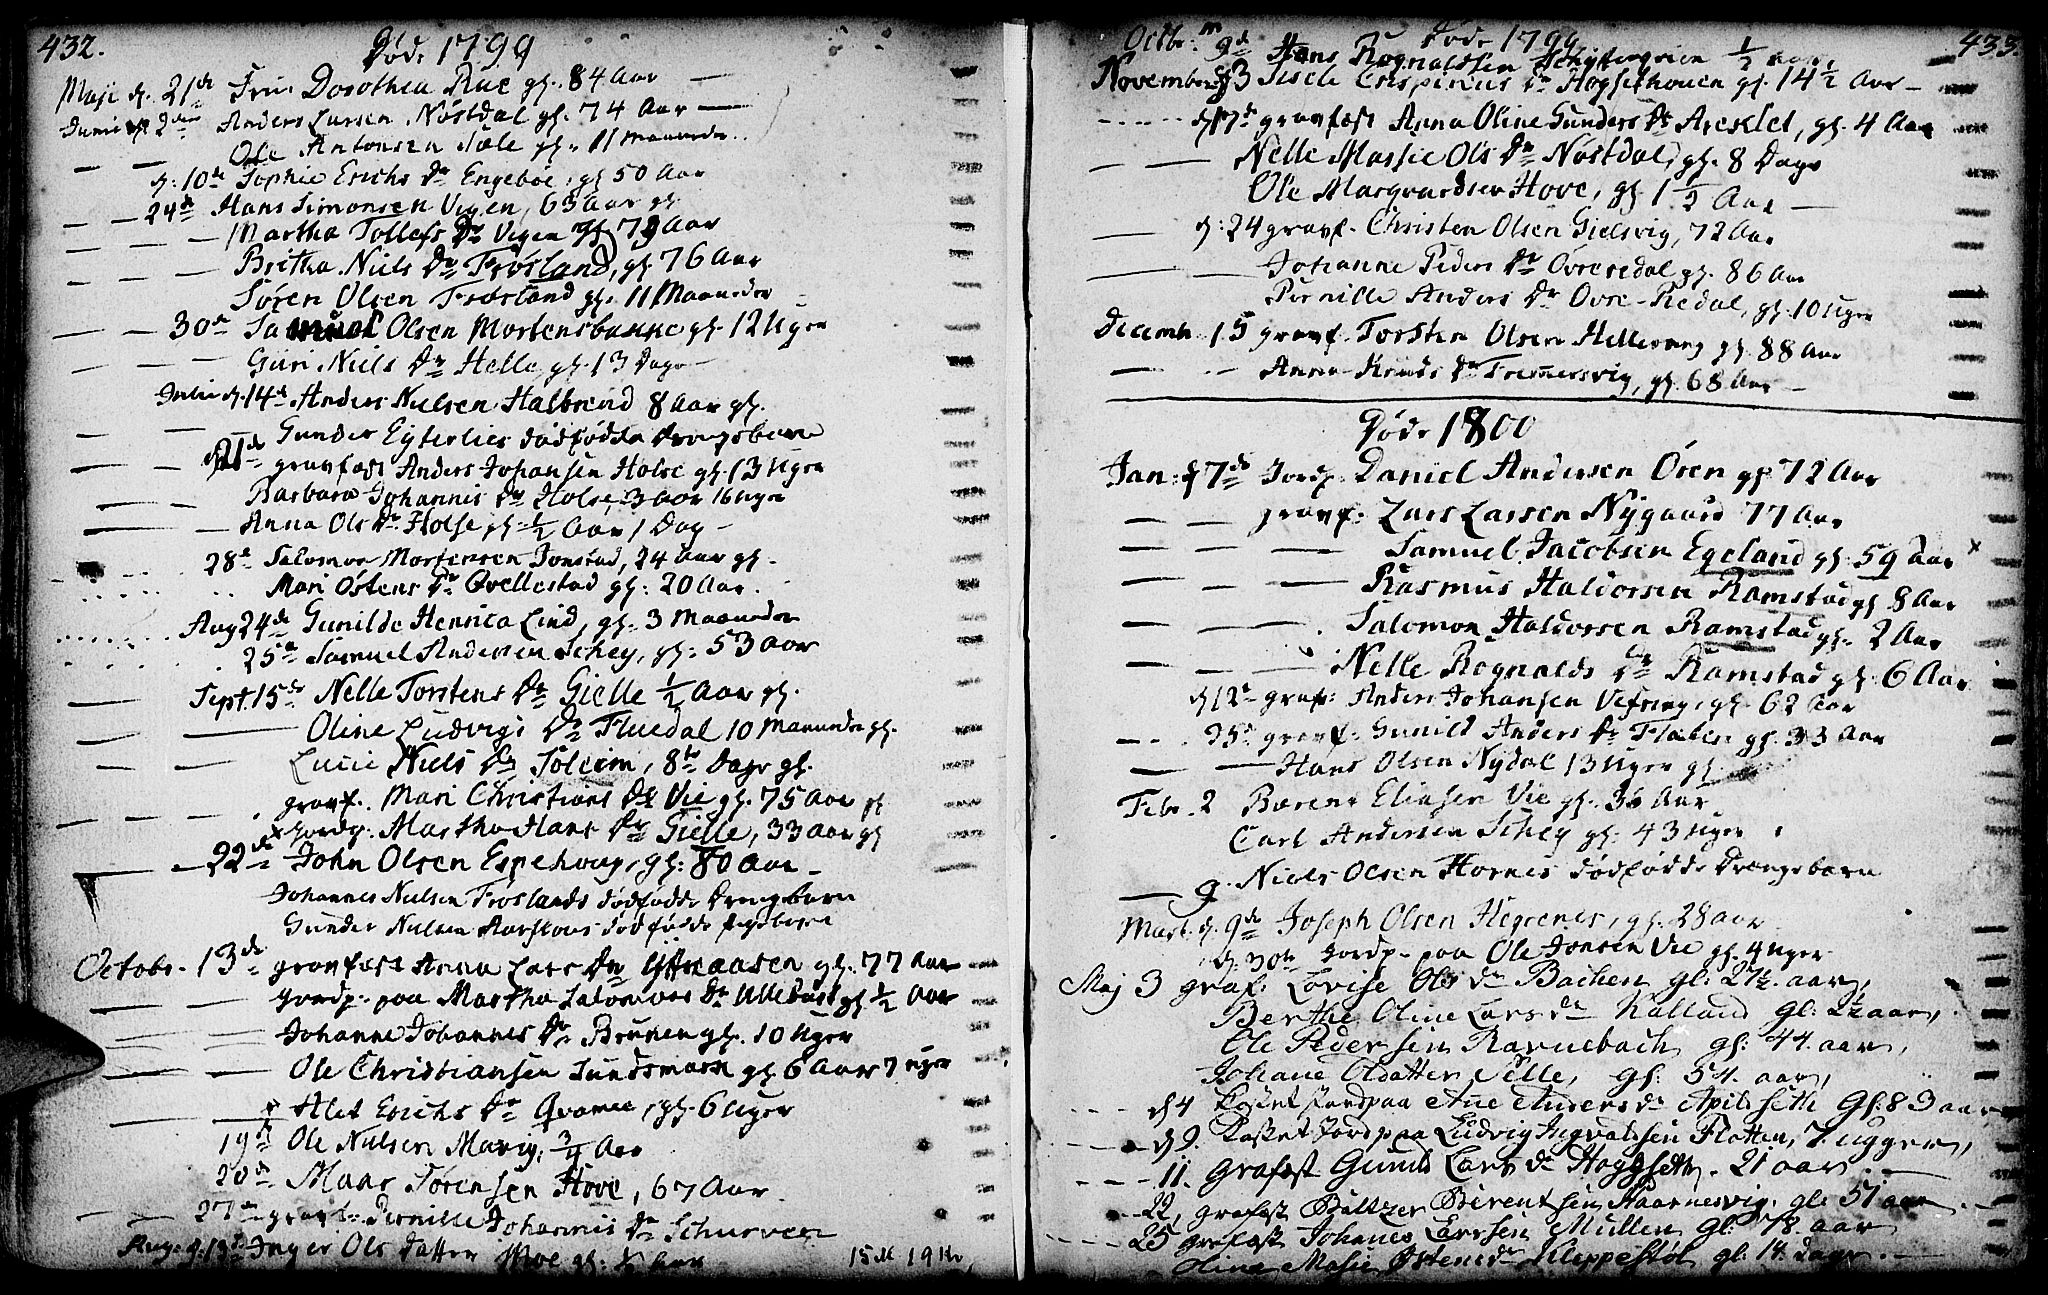 432.
Døde 1799
Maji d. 21de Frue Dorothea Rue gl. 84 Aar
Junii d. 2den Anders Larsen Nøstdal gl. 74 Aar
Ole Antonsen Sæle gl. 11 Maaneder
d: 10de Sophie Erichs Dr Engeboe, gl 50 Aar
24de Hans Simonsen Vegen, 63 Aar gl
Martha Tollefs Dr Vegen gl 79 Aar
Britha Niels Dr Frøsland, gl 76 Aar
Søren Olsen Frøsland gl. 11 Maaneder
30de Samuel Olsen Mortensbakke gl. 12 Uger
Guri Niels Dr Helle gl. 13 Dage
Julii d. 14de Anders Nielsen Halbrend 8 Aar gl.
Gunder dødfødde drengebarn
d21de gravfæst Anders Johansen Holse gl. 13 Uger
Barbara Johannis Dr Holse, 3 Aar 16 Uger
Anna Ols Dr Holse gl. ½ Aar 1 Dag
28de Salomon Mortensen Jonstad, 24 Aar gl.
Mari Østens Dr Qvellestad gl: 20 Aar.
Aug 24de Gunilde Henrica Lind, gl. 3 Maaneder
25de Samuel Andersen Schey, gl: 53 Aar
Sept. 15de Nelle Torstens Dr Gielle ½ Aar gl.
Oline Ludvigs Dr Fluedal 10 Maaneder gl.
Lucie Niels Dr Soleim, 8te Dage gl.
gravf. Mari Christians Dr Vie gl. 75 Aar
Jordp. Martha Hans Dr Gielle, 33 Aar gl
22de John Olsen Espehoug, gl: 80 Aar
Johannes Nielsen Frøslands dødfødde Drengebarn
Gunder Nielsen dødfødde
Octobr. 13de gravfæst Anna Lars Dr gl. 77 Aar
Jordp. paa Martha Salomons Dr Ullebust gl ½ Aar
Johanne Johannes Dr Bruken gl. 10 Uger
Ole Christiansen Sundsmark gl 6 Aar 7 uger
Alet Erichs Dr Qvamme, gl. 6 Uger
19de Ole Nielsen Marig, ¾ Aar
20de Maar Sørensen Hove, 67 Aar
27de gravf. Pernille Johannis Dr
Aug. d. 18de Inger Ols datter Moe gl: ½ Aar 15 M 19 Kr.
433.
Døde 1799
Octbr. d. 9de Hans Rognaldsen ½ Aar
November d3 Sisele Crispinus Dr Høgsethouen gl. 14½ Aar
d17de gravfæst Anna Oline Gunders Dr Areklet, gl. 4 Aar
Nelle Massie Ols Dr Nøstdal, gl. 8 Dage
Ole Margvardsen Hove, gl 1½ Aar
d: 24 gravf. Christen Olsen Gielsvig, 72 Aar
Johanne Peders Dr Ovreredal gl. 86 Aar
Pernille Anders Dr Øvre-Redal, gl. 10 Uger
Decemb. 15 gravf. Torsten Olsen Hellevang gl. 88 Aar
Anna Knuds Dr Fremersvig, gl. 68 Aar
Døde 1800
Jan: d 7de Jordp. Daniel Andersen Ören gl 72 Aar
gravf. Lars Larsen Nygaard 77 Aar
Samuel Jacobsen Egeland gl. 59 Aar x
Rasmus Haldorsen Ramstad gl 8 Aar
Salomon Haldorsen Ramstad gl. 2 Aar
Nelle Rognalds Dr Ramstad gl. 6 Aar
d12te graf: Anders Johansen Vefring, gl. 62 Aar
25de gravf. Gunild Anders Dr Flaten gl. 33 Aar
Hans Olsen Nydal 13 Uger gl.
Febr. 2 Barent Eliasen Vie gl. 36 Aar
Carl Andersen Schey gl. 43 uger
9. Niels Olsen Hornes dødfødde Drengebarn
Mart. d. 9de Joseph Olsen Hegrenes, gl. 28 aar
d. 30te Jordp. paa Ole Jonsen Vie gl. 4 uger
Maj 3 graf: Lovise Ols dr Bachen gl. 27½ aar,
Berthe Oline Lars dr Kalland gl. 2½ aar,
Ole Pedersen Ravnebach gl. 44. aar,
Johane Oldatter Selle, gl. 54. aar,
d4 Kastet Jordpaa Ane Anders dr Apildseth Gl: 83 aar
d9. Kastet Jordpaa Ludvig Ingvaldsen Flatten, 7 ugger,
11. Grafæst Gunild Lars dr Høgseth. 21 aar.
22, grafæst Baltzer Berentsen Haarnesvig. gl: 51 aar
25 grafæst Johanes Larsen Mullen gl. 78. aar
Oline Marie Østensdr Kleppestøl gl: 14. Dage.